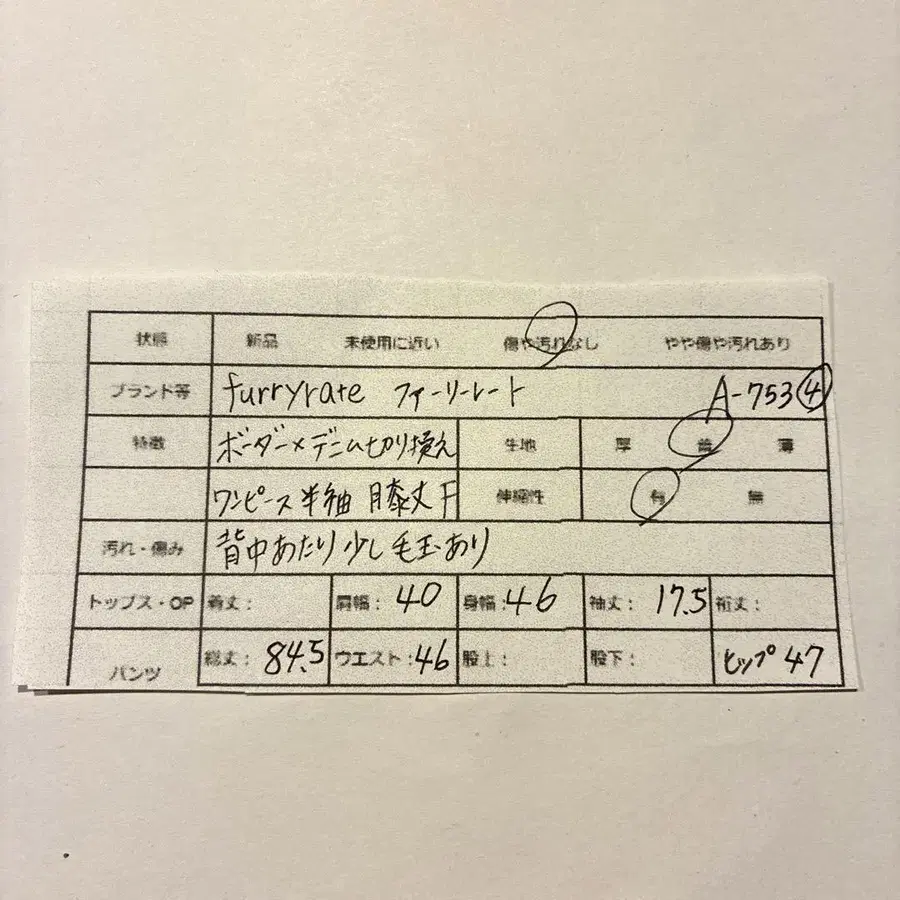 状態 新品 未使用に近い 傷や汚れなし やや傷や汚れあり
ブランド等 furryrate ファーリーレート A-753 ④
特徴 ボーダー×デニム切り換え 生地 厚 普 薄
ワンピース 半袖 膝丈 F 伸縮性 有 無
汚れ・傷み 背中あたり少し毛玉あり
トップス・OP 着丈: 肩幅: 40 身幅: 46 袖丈: 17.5 裄丈:
パンツ 総丈: 84.5 ウエスト: 46 股上: 股下: ヒップ 47